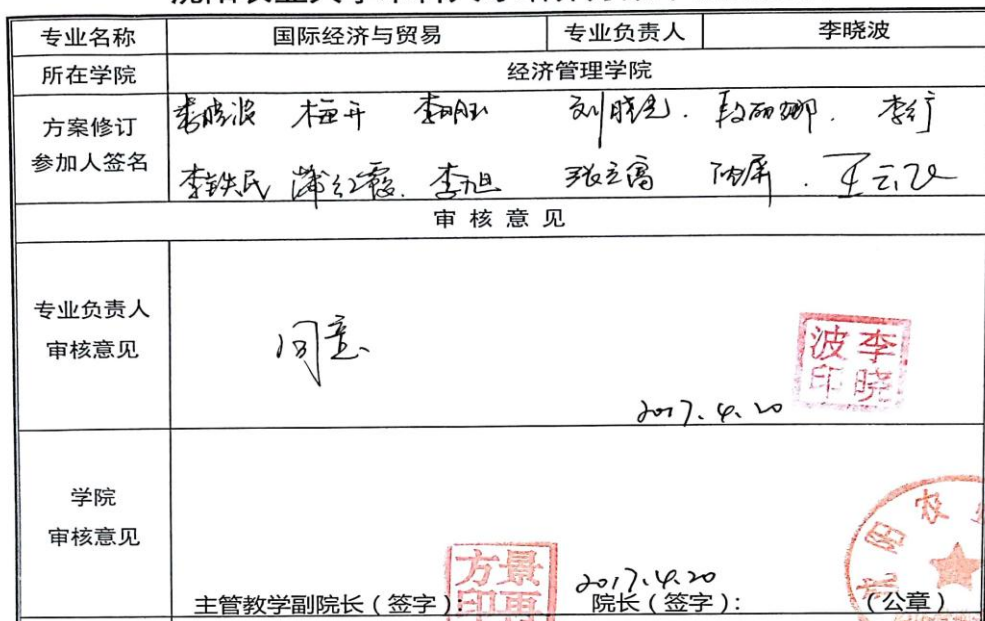 专业名称 国际经济与贸易 专业负责人 李晓波
所在学院 经济管理学院
方案修订
参加人签名
李晓波 梅开 刘晓光. 段丽娜.
李铁民 蒲红霞. 李旭 张立富 陈屏.
审核意见
专业负责人
审核意见
同意
李晓波印
2017.4.20
学院
审核意见
2017.4.20
主管教学副院长(签字): 院长(签字): (公章)